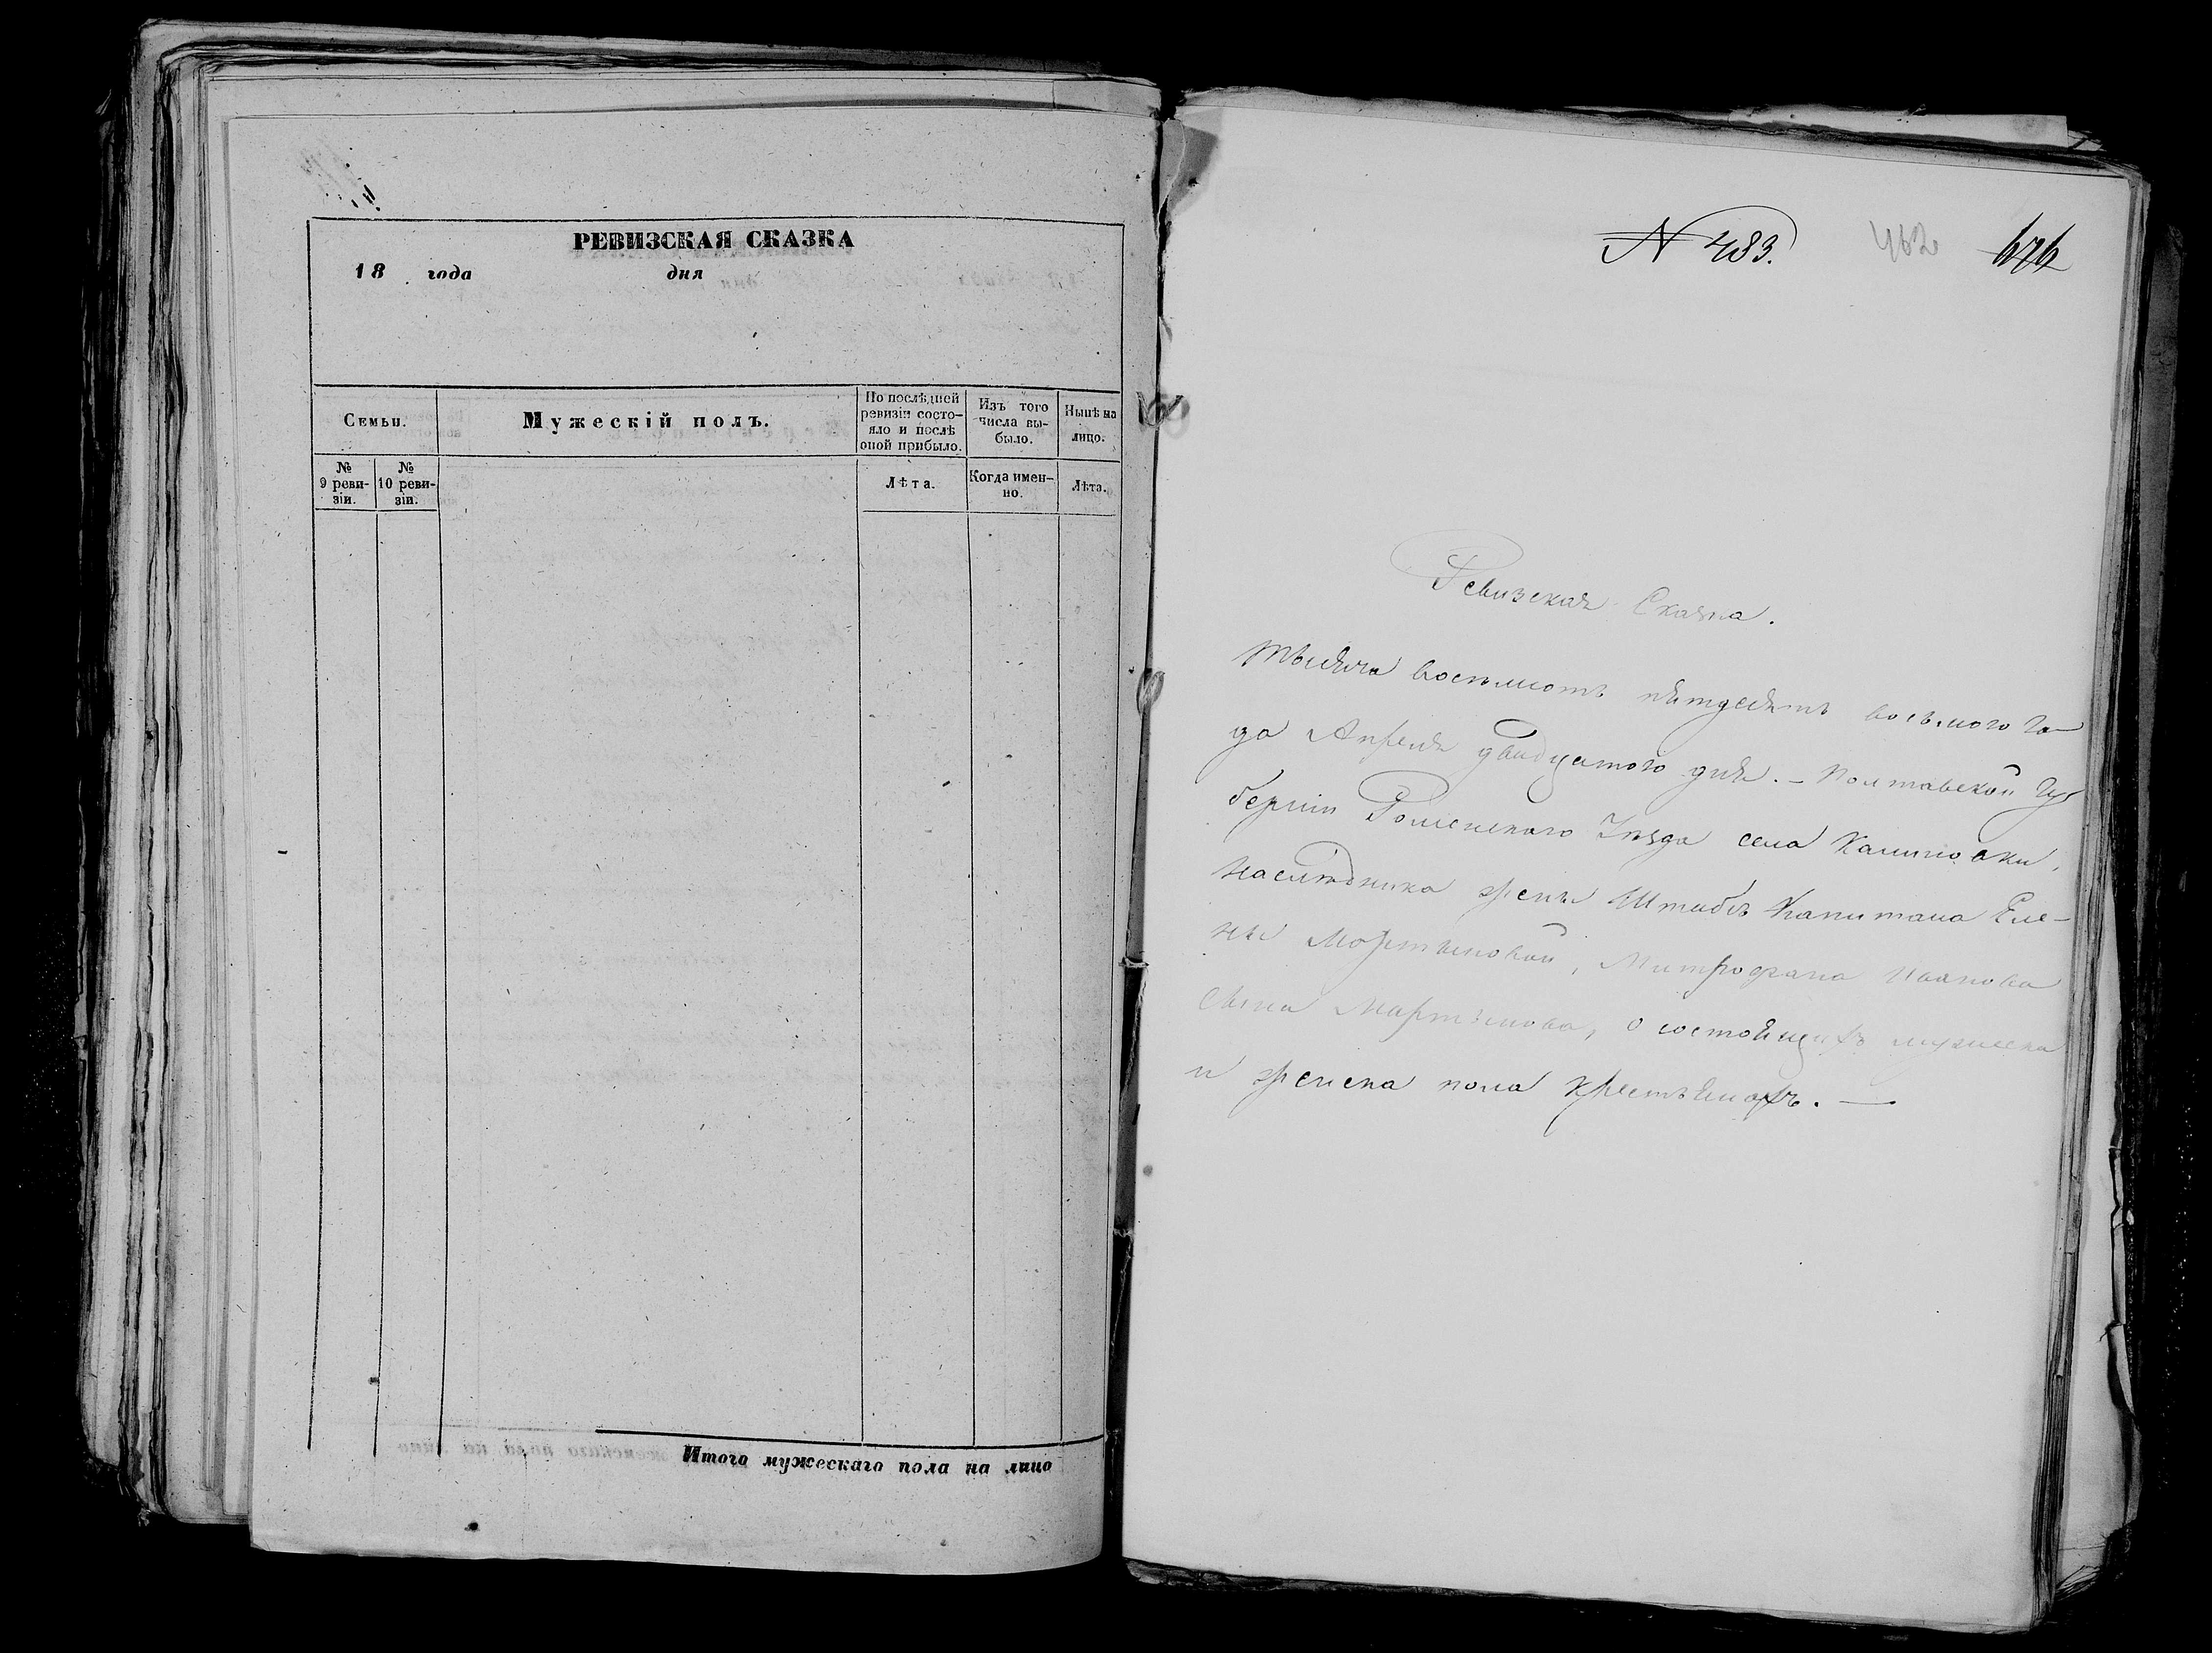 РЕВИЗСКАЯ СКАЗКА
18 года дня
Семьи.
Мужескій полъ.
По послѣдней
ревизіи состо-
яло и послѣ
оной прибыло.
Изъ того
числа вы-
было.
Нынѣ на
лицо.
№
9 реви-
зіи.
№
10 реви-
зіи.
Лѣта.
Когда имен-
но.
Лѣта.
Итого мужескаго пола на лицо
N 483. 462 676
Ревизская Сказка.
Тысяча восемьсотъ пятдесятъ восьмого го-
да Апреля двадцатого дня. – Полтавской Гу-
берніи Роменского Уѣзда села Калиновки,
наслѣдника жены Штабсъ Капитана Еле-
ны Мартыновой, Митрофана Иванова
сына Мартынова, о состоящихъ мужеска
и женска пола крестьянахъ. —